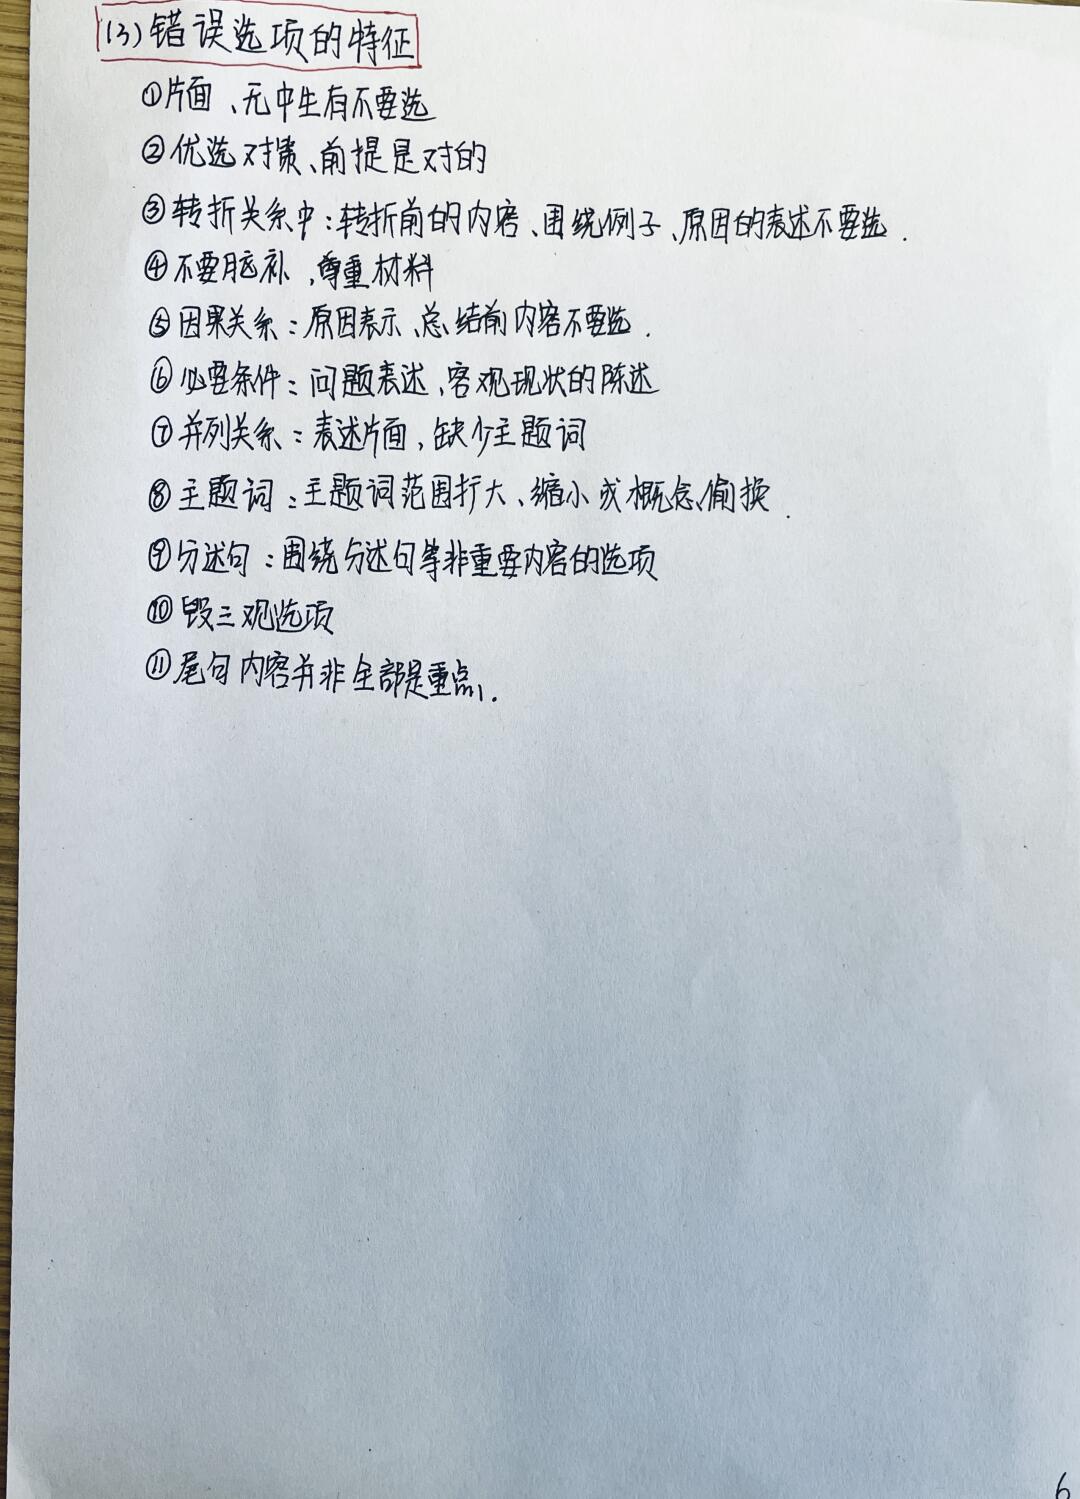 (3) 错误选项的特征
①片面、无中生有不要选
②优选对策、前提是对的
③转折关系中：转折前的内容、围绕例子、原因的表述不要选.
④不要脑补，尊重材料
⑤因果关系：原因表示、总结前内容不要选.
⑥必要条件：问题表述、客观现状的陈述
⑦并列关系：表述片面，缺少主题词
⑧主题词：主题词范围扩大、缩小或概念偷换.
⑨分述句：围绕分述句等非重要内容的选项
⑩毁三观选项
⑪尾句内容并非全部是重点.
6